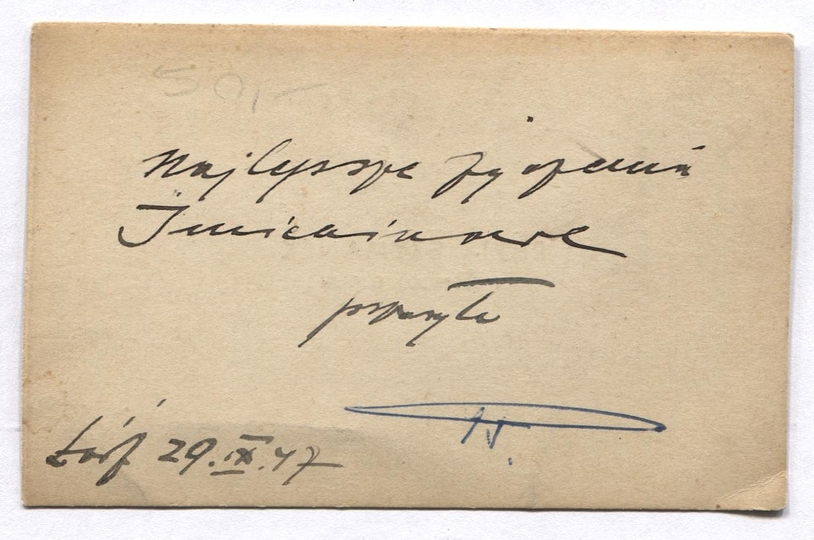 50,-
Najlepsze życzenia
Imieninowe
przesyła
Łódź 29.IX.47